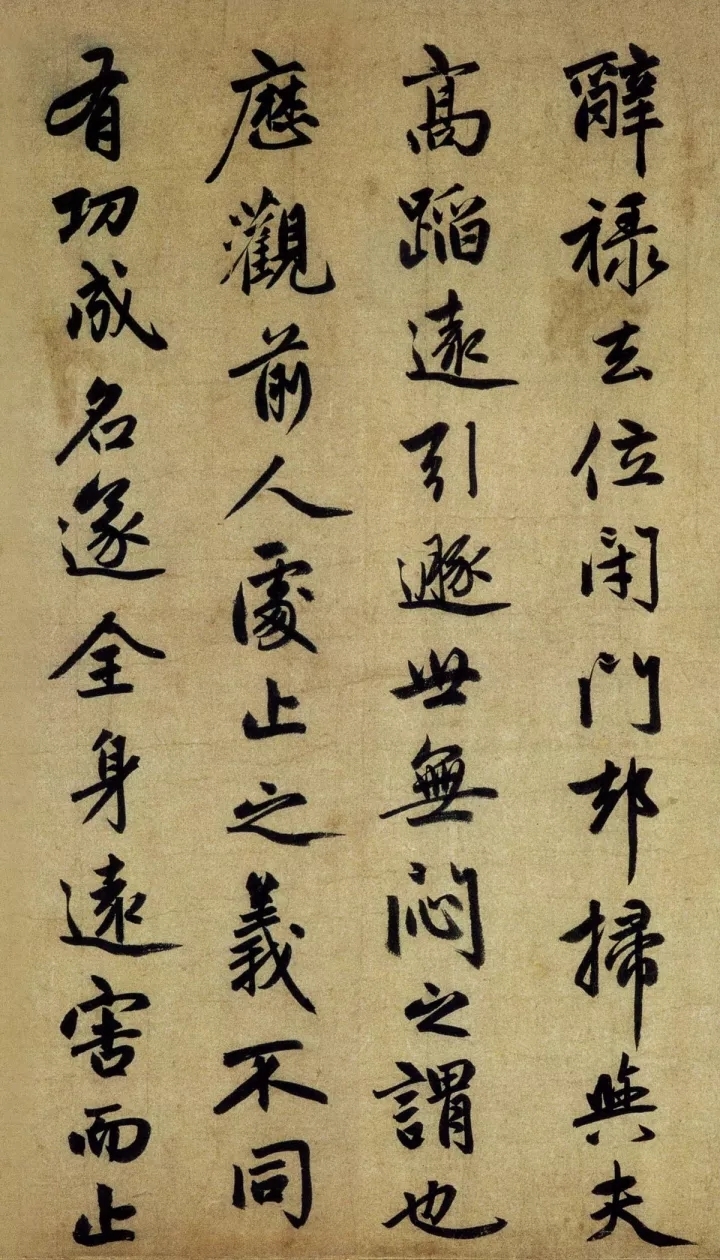 辭祿去位閑門却掃與夫
高蹈遠引遯世無悶之謂也
歷觀前人處止之義不同
有功成名遂全身遠害而止